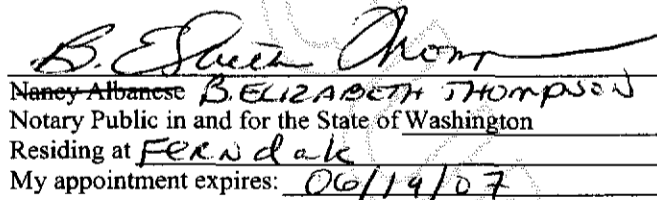 B. Elizabeth Thompson
Nancy Albanese B. ELIZABETH THOMPSON
Notary Public in and for the State of Washington
Residing at Ferndale
My appointment expires: 06/19/07